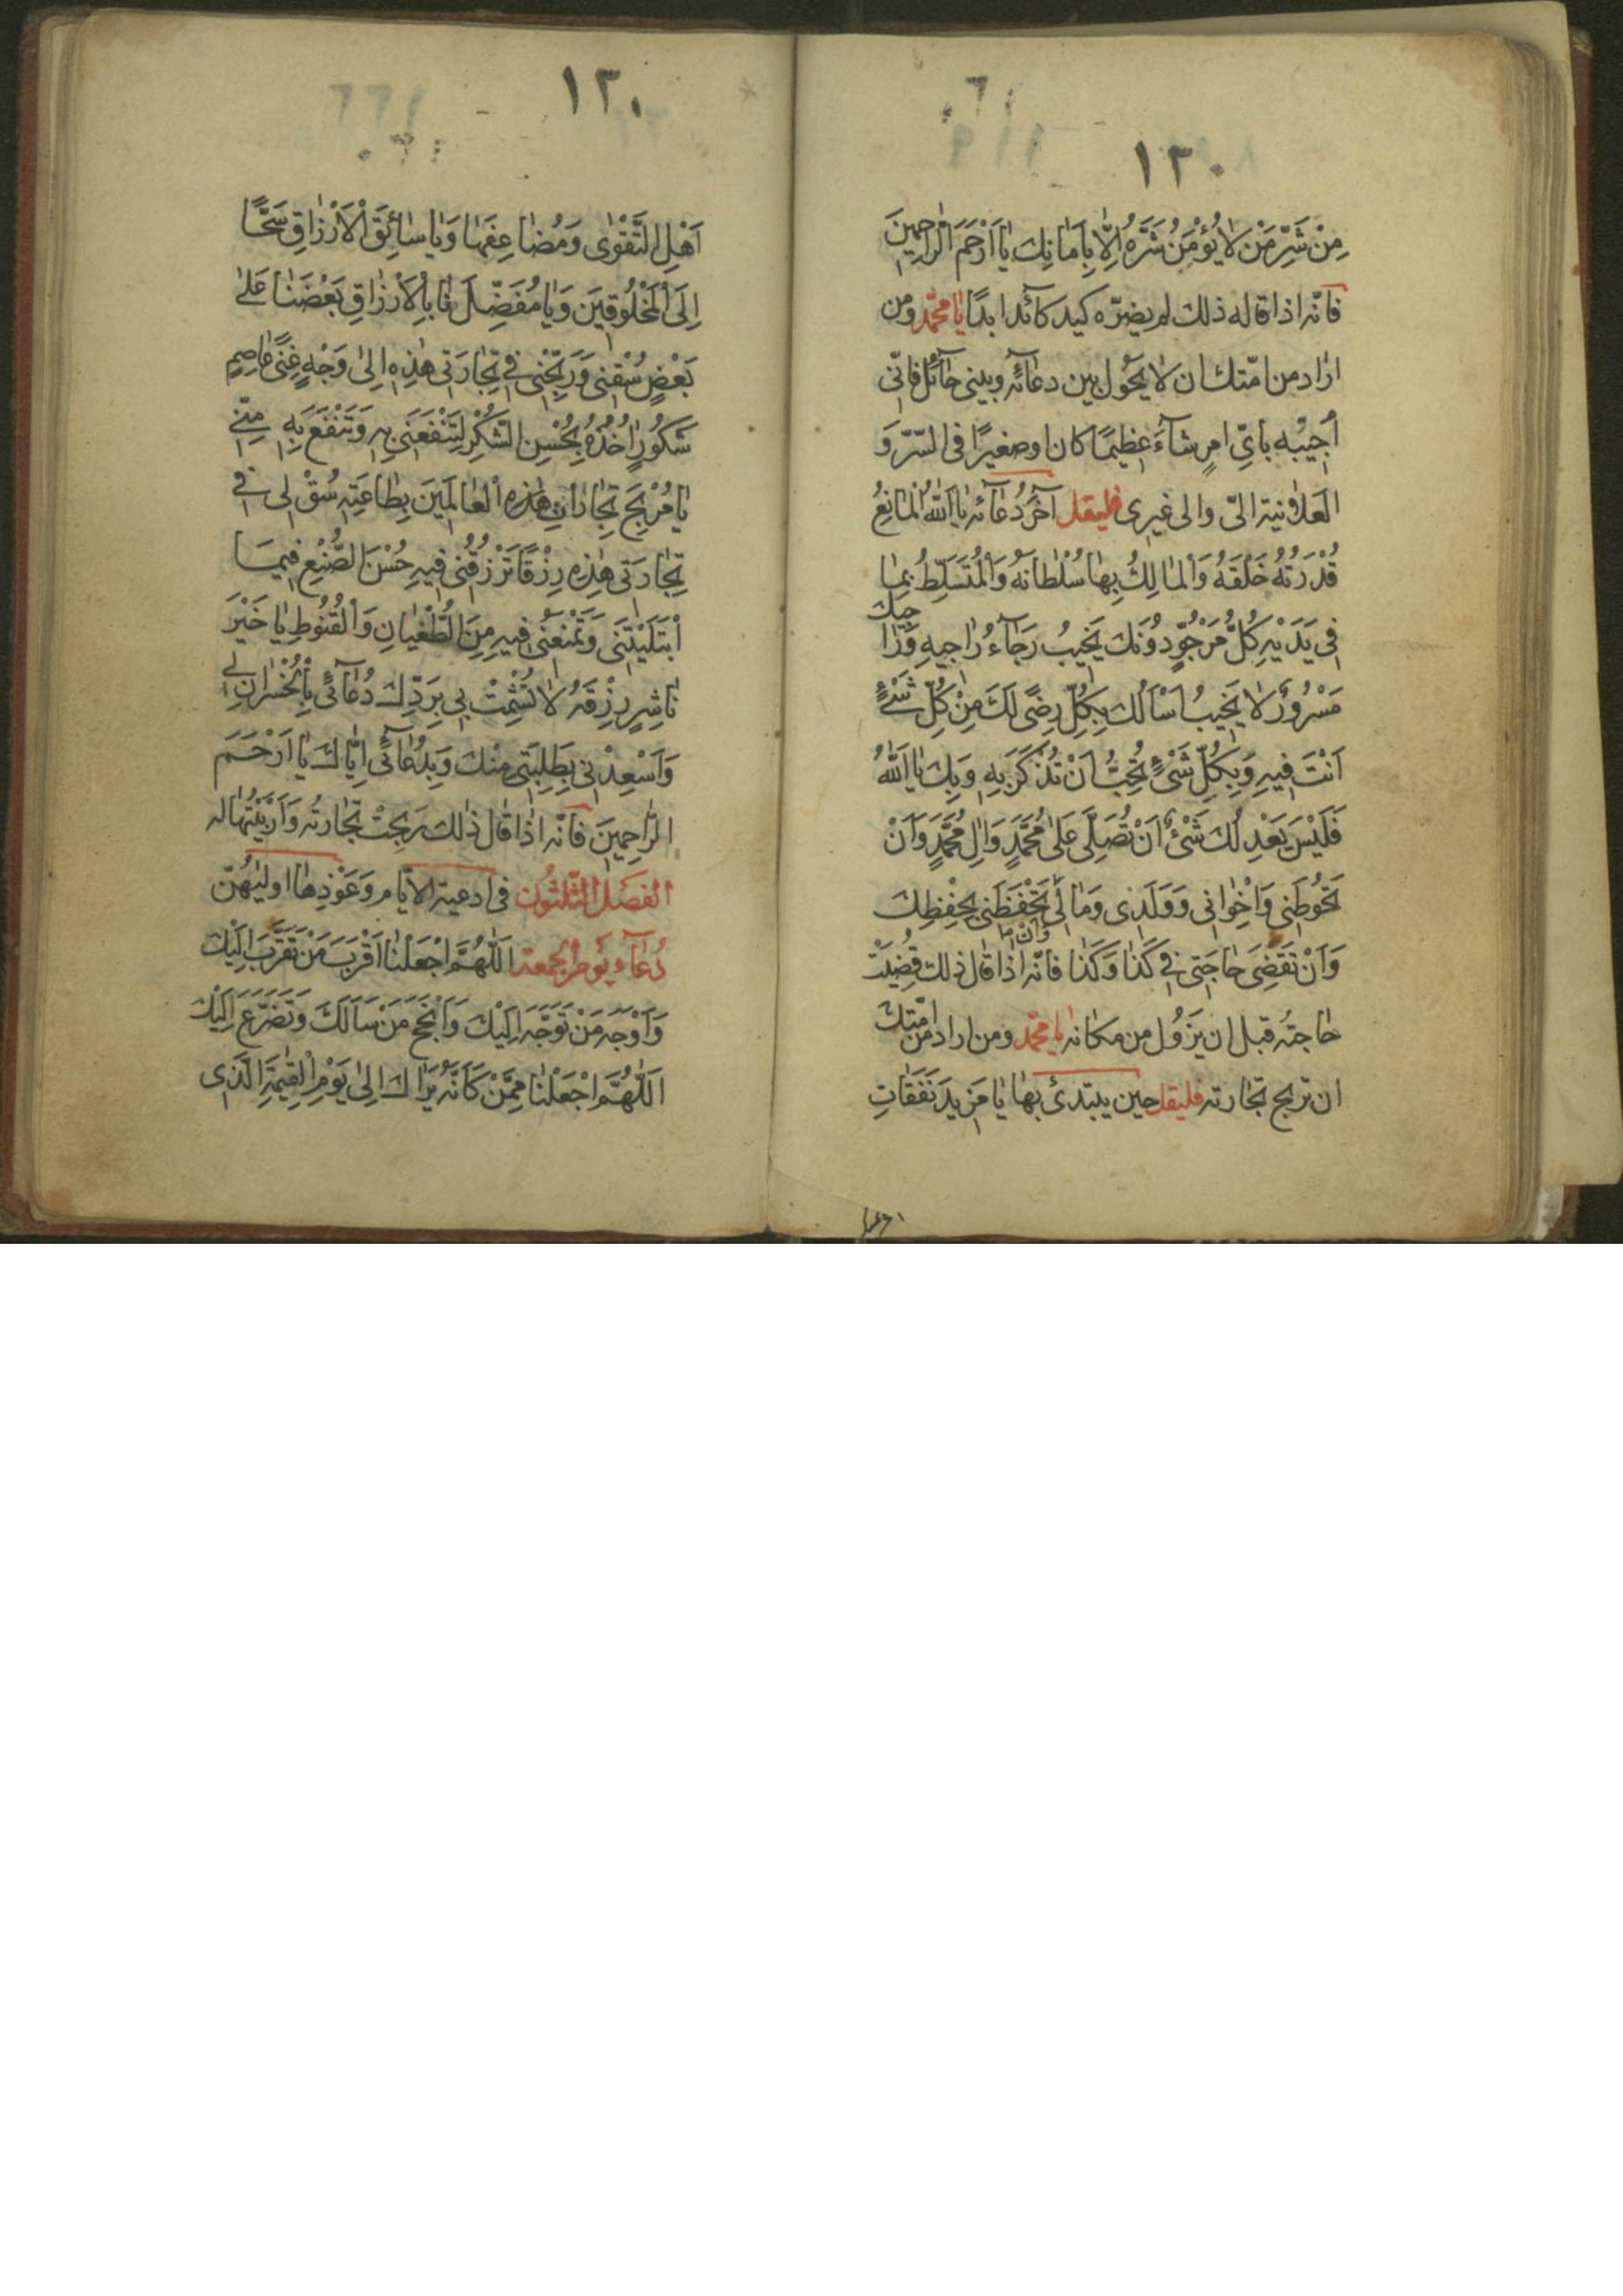 ١٣٠
مِنْ شَرِّ مَنْ لَا يُؤْمَنُ شَرَّهُ اِلَّا بِاَمَانِكَ يَا اَرْحَمَ الرَّاحِمِينَ
فانّه اذا قاله ذلك لم يضرّه كيد كآئد ابدًا يا محمّد ومن
اراد من امّتك ان لا يحول بين دعآئه وبيني حآئل فانّي
اُجيبُه باىِّ امرٍ شآءَ عظيمًا كان او صغيرًا فى السّرّ وَ
العلانية الىّ والى غيرى فليقل آخر دُعآئه يا اَللّٰهُ الْمَانِعُ
قُدْرَتُهُ خَلْقَهُ وَالْمَالِكُ بِهَا سُلْطَانَهُ وَالْمُتَسَلِّطُ بِمَا
فِى يَدَيْهِ كُلُّ مَرْجُوٍّ دُونَكَ يَخِيبُ رَجَآءُ رَاجِيهِ وَرَا
جيك
مَسْرُورٌ لَا يَخِيبُ اَسْاَلُكَ بِكُلِّ رِضًى لَكَ مِنْ كُلِّ شَىْءٍ
اَنْتَ فِيهِ وَبِكُلِّ شَىْءٍ تُحِبُّ اَنْ تُذْكَرَ بِهِ وَبِكَ يَا اَللّٰهُ
فَلَيْسَ يَعْدِلُكَ شَىْءٌ اَنْ تُصَلِّىَ عَلٰى مُحَمَّدٍ وَاٰلِ مُحَمَّدٍ وَاَنْ
تَحُوطَنِى وَاِخْوَانِى وَوَلَدِى وَمَالِى تَحْفَظَنِى بِحِفْظِكَ
وَاَنْ تَقْضِىَ حَاجَتِى فِى كَذَا وَكَذَا فانّه اذا قال ذلك قُضِيَتْ
حاجتُه قبل ان يَزُول من مكانه يا محمّد ومن اراد من امّتك
ان تربح تجارته فليقل حين يبتدئ بها يَا مَزِيدَ نَفَقَاتِ
١٣٠
اَهْلِ التَّقْوٰى وَمُضَاعِفَهَا وَيَا سَائِقَ الْاَرْزَاقِ سَحًّا
اِلَى الْمَخْلُوقِينَ وَيَا مُفَضِّلَنَا بِالْاَرْزَاقِ بَعْضَنَا عَلٰى
بَعْضٍ سُقْنِى وَرَبِّحْنِى فِى تِجَارَتِى هٰذِهِ اِلٰى وَجْهٍ غِنًى عَاصِمٍ
شَكُورٍ اٰخُذُهُ بِحُسْنِ الشُّكْرِ لِتَنْفَعَنِى بِهِ وَتَنْفَعَ بِهِ مِنِّى
يَا مُرْبِحَ تِجَارَاتِ هٰذِهِ الْعَالَمِينَ بِطَاعَتِهِ سُقْ لِى فِى
تِجَارَتِى هٰذِهِ رِزْقًا تَرْزُقُنِى فِيهِ حُسْنَ الصُّنْعِ فِيمَا
ابْتَلَيْتَنِى وَتَمْنَعُنِى فِيهِ مِنَ الطُّغْيَانِ وَالْقُنُوطِ يَا خَيْرَ
نَاشِرٍ رِزْقَهُ لَا تُشْمِتْ بِى بِرَدِّكَ دُعَآئِى بِالْخُسْرَانِ لِى
وَاَسْعِدْنِى بِطَلِبَتِى مِنْكَ وَبِدُعَآئِى اِيَّاكَ يَا اَرْحَمَ
الرَّاحِمِينَ فانّه اذا قال ذلك رَبِحتْ تجارتُه وَاَرْبَيْتُهَا له
الفصل الثّلثون فى ادعية الايّام وَعَوْذِهَا اوليٰهُنّ
دُعآء يَوم الجمعة اَللّٰهُمَّ اجْعَلْنَا اَقْرَبَ مَنْ تَقَرَّبَ اِلَيْكَ
وَاَوْجَهَ مَنْ تَوَجَّهَ اِلَيْكَ وَاَنْجَحَ مَنْ سَاَلَكَ وَتَضَرَّعَ اِلَيْكَ
اَللّٰهُمَّ اجْعَلْنَا مِمَّنْ كَاَنَّهُ يَرَاكَ اِلٰى يَوْمِ الْقِيٰمَةِ الَّذِى